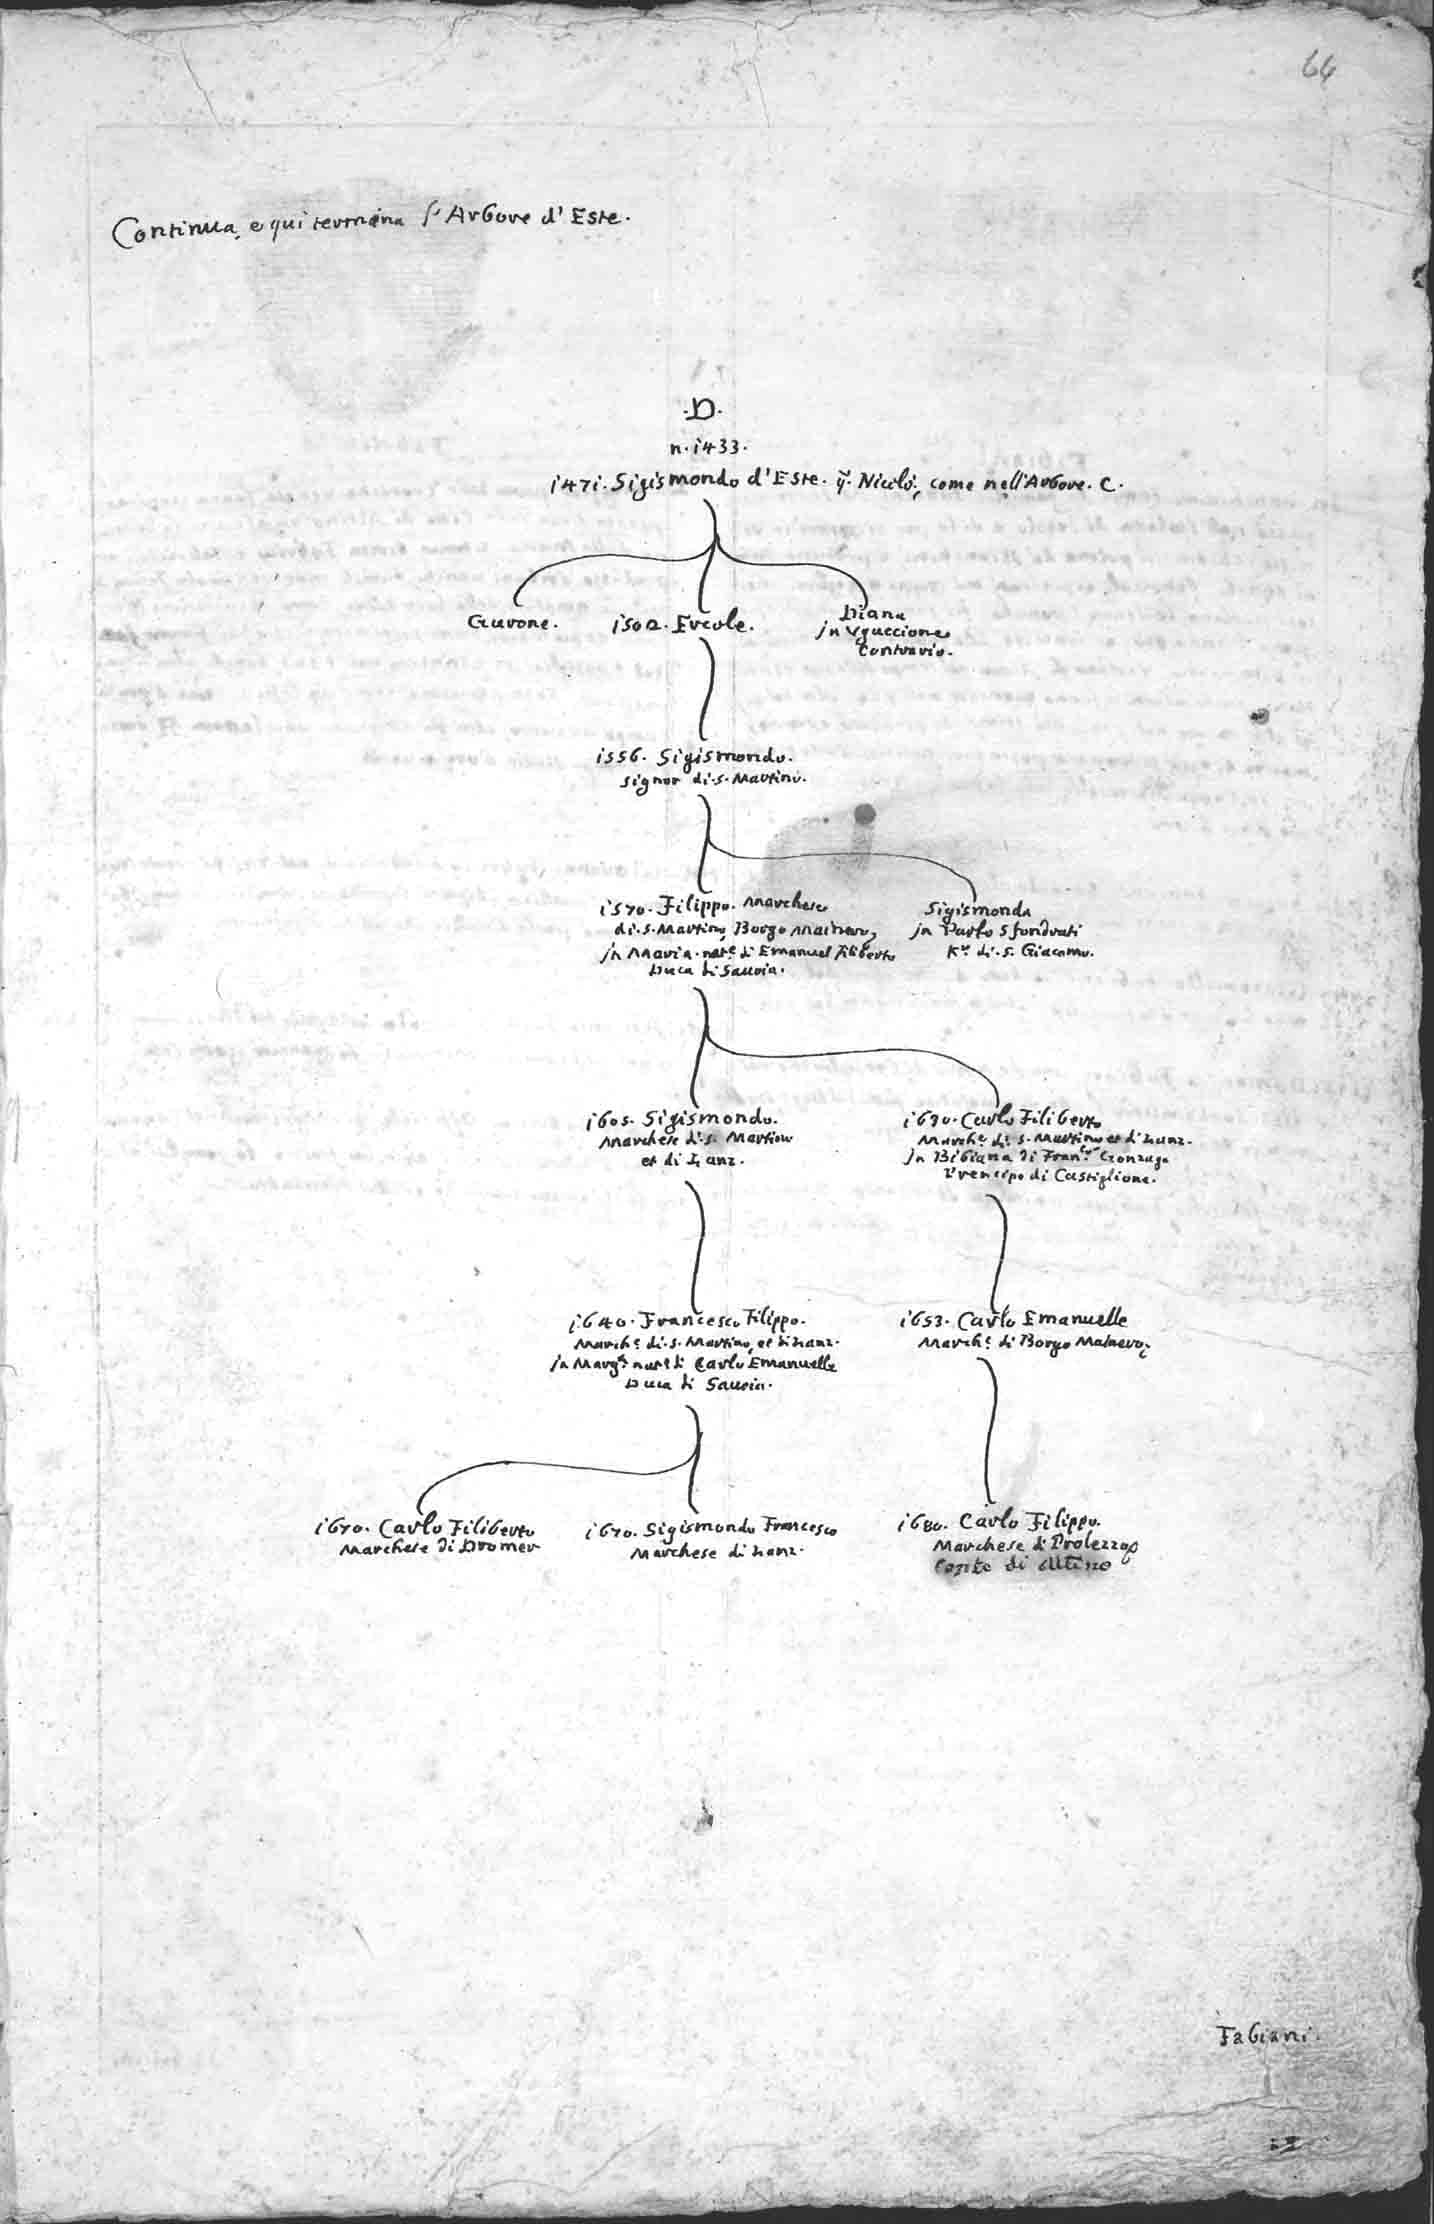 66
Continua, e qui termina l'Arbore d'Este.
.D.
n. 1433.
1471. Sigismondo d'Este. q. Nicolò, come nell'Arbore. C.
Gurone. 1502. Ercole. Diana
in Uguccione
Contrario.
1556. Sigismondo.
Signor di. S. Martino.
1570. Filippo. Marchese
di. S. Martino, Borgo Mainero,
in Maria. nat.e di Emanuel Filiberto
Duca di Savoia.
Sigismonda
in Paolo Sfondrati
K.r di. S. Giacomo.
1605. Sigismondo.
Marchese di. S. Martino
et di Lanz.
1630. Carlo Filiberto
March.e di. S. Martino et di Lanz.
in Bibiana di Fran.co Gonzaga
Prencipe di Castiglione.
1640. Francesco Filippo.
March.e di. S. Martino, et di Lanz.
in Marg.ta nat.e di Carlo Emanuelle
Duca di Savoia.
1653. Carlo Emanuelle
March.e di Borgo Mainero,
1670. Carlo Filiberto
Marchese di Dromer
1670. Sigismondo Francesco
Marchese di Lanz.
1680. Carlo Filippo.
Marchese di
Conte di
Fabiani.